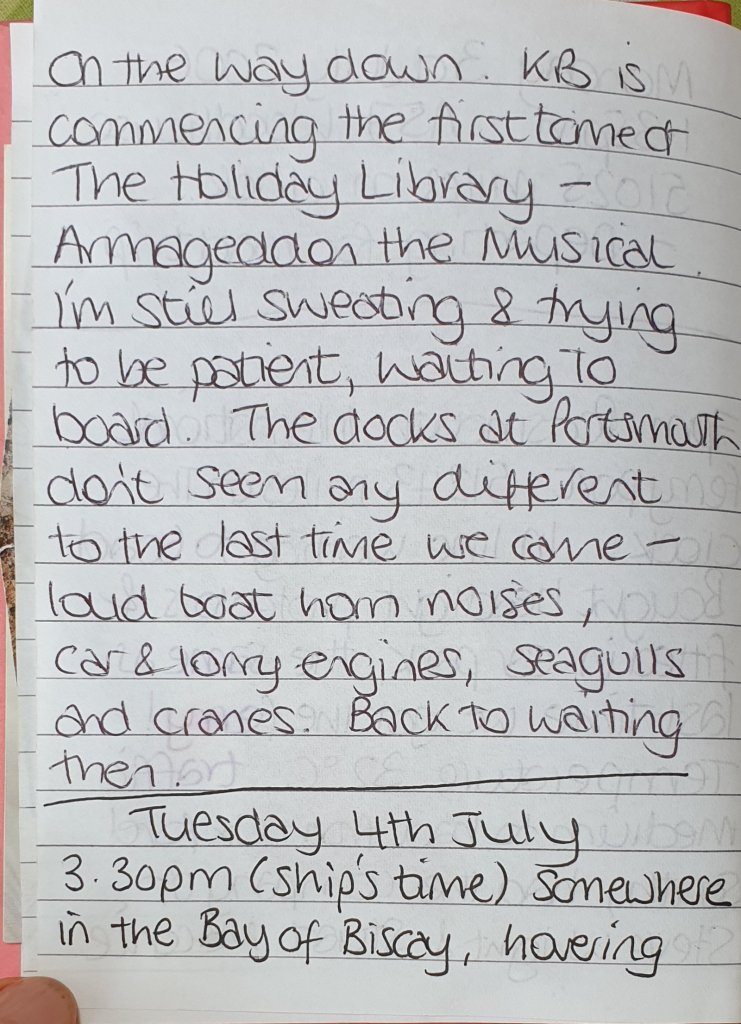 On the way down. KB is
commencing the first tome of
The Holiday Library –
Armageddon the Musical.
I'm still sweating & trying
to be patient, waiting to
board. The docks at Portsmouth
don't seem any different
to the last time we came –
loud boat horn noises,
car & lorry engines, seagulls
and cranes. Back to waiting
then.
Tuesday 4th July
3.30pm (ship's time) Somewhere
in the Bay of Biscay, hovering